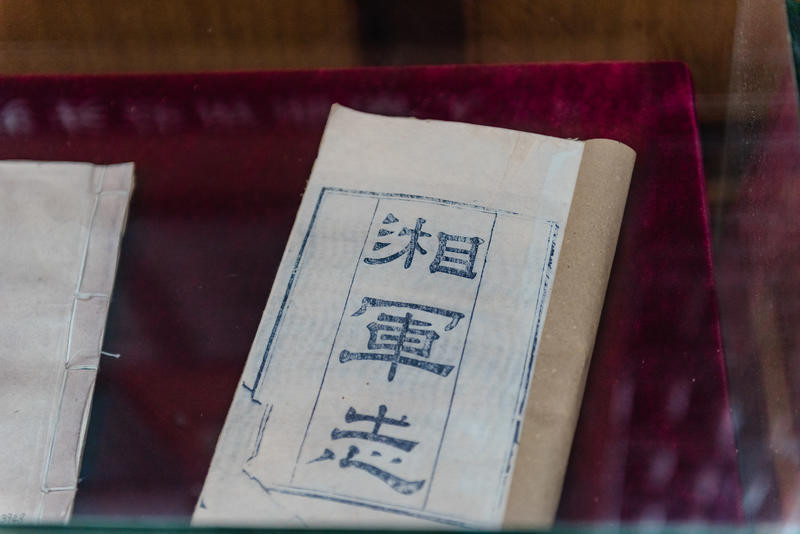 湘軍志